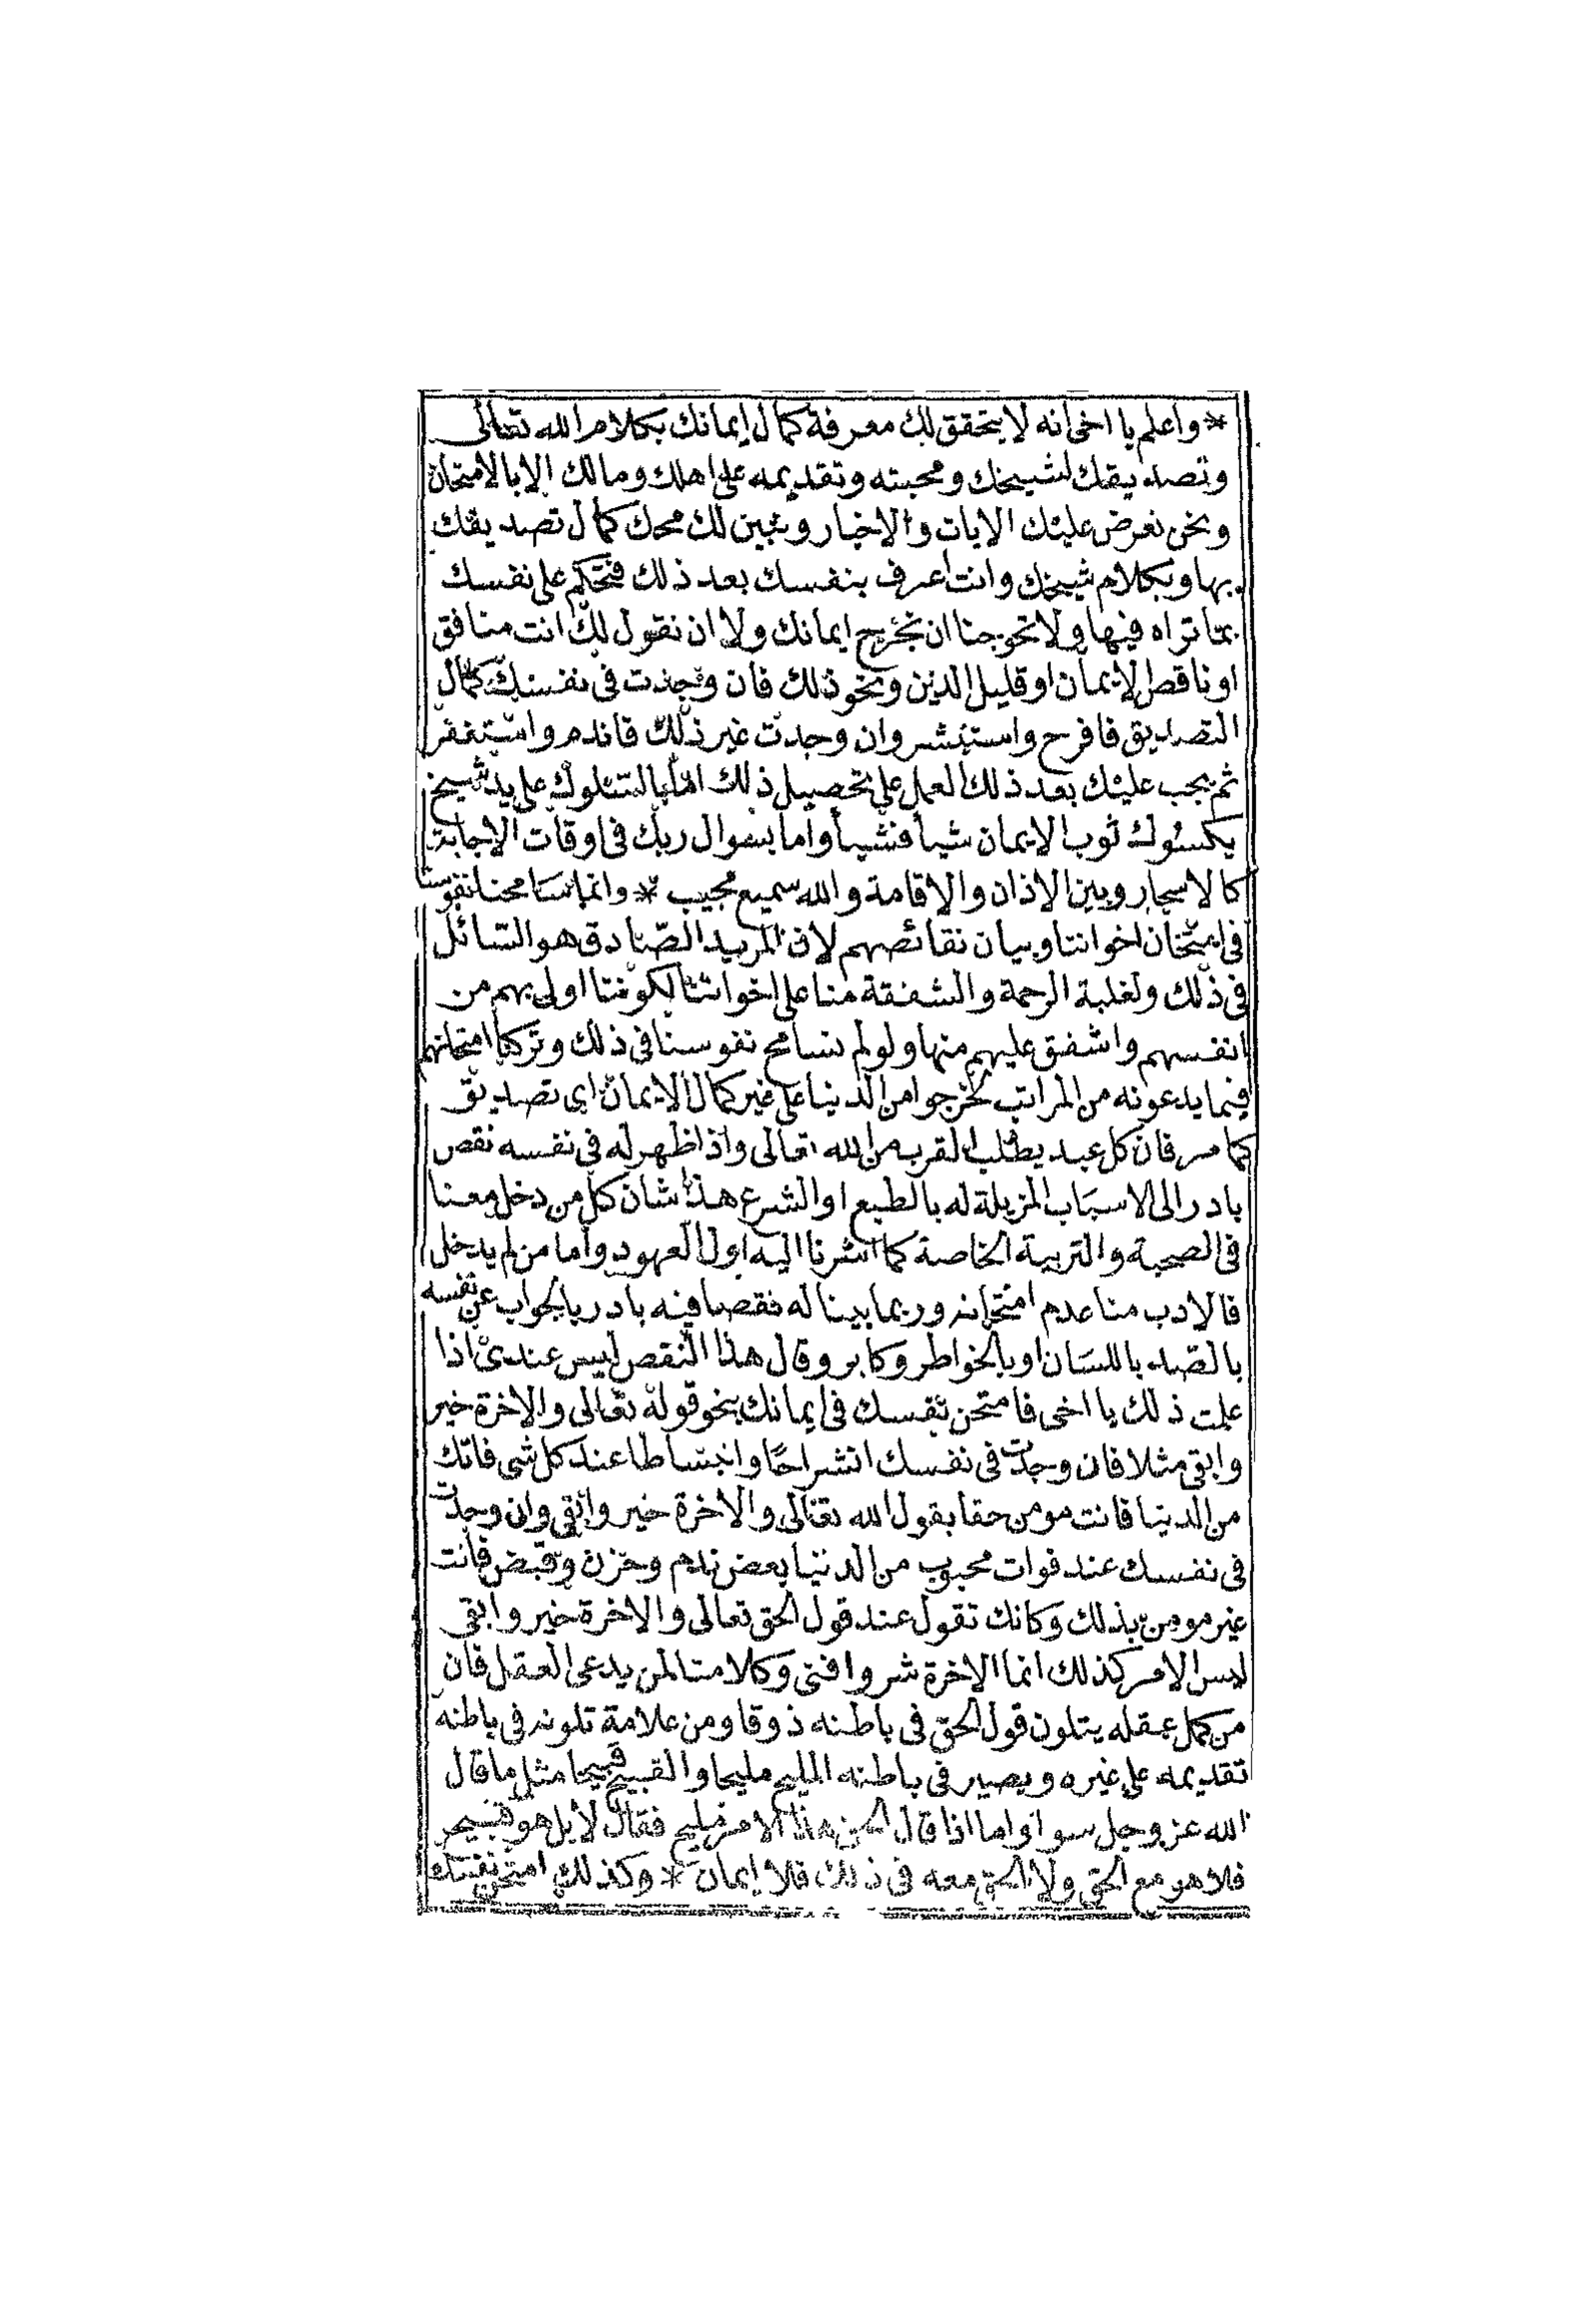 * واعلم يا اخى انه لا يتحقق لك معرفة كمال إيمانك بكلام الله تعالى
وتصديقك لشيخك ومحبته وتقديمه على اهلك ومالك الا بالامتحان
ونحن نعرض عليك الايات والاخبار ونبين لك محك كمال تصديقك
بها وبكلام شيخك وانت اعرف بنفسك بعد ذلك فتحكم على نفسك
بما تراه فيها ولا تحوجنا ان نجرح إيمانك ولا ان نقول لك انت منافق
او ناقص الايمان او قليل الدين ونحو ذلك فان وجدت فى نفسك كمال
التصديق فافرح واستبشر وان وجدت غير ذلك فاندم واستغفر
ثم يجب عليك بعد ذلك العمل على تحصيل ذلك امّا بالسّلوك على يد شيخ
يكسوك ثوب الايمان شيأ فشيأ واما بسوال ربك فى اوقات الاجابة
كالاسحار وبين الاذان والاقامة والله سميع مجيب * وانما سامحنا نفوسنا
فى امتحان اخواننا وبيان نقائصهم لان المريد الصّادق هو السّائل
فى ذلك ولغلبة الرحمة والشفقة منا على اخواننا لكوننا اولى بهم من
انفسهم واشفق عليهم منها ولو لم نسامح نفوسنا فى ذلك وتركنا امتحانهم
فيما يدعونه من المراتب لخرجوا من الدنيا على غير كمال الايمان اى تصديق
كما مر فان كل عبد يطلب القرب من الله تعالى واذا ظهر له فى نفسه نقص
بادر الى الاسباب المزيلة له بالطبع او الشرع هذا شان كل من دخل معنا
فى الصحبة والتربية الخاصة كما اشرنا اليه اول العهود واما من لم يدخل
فالادب منا عدم امتحانه وربما بينا له نقصا فيه بادر بالجواب عن نفسه
بالصّد باللسان او بالخواطر وكابر وقال هذا النقص ليس عندى اذا
علمت ذلك يا اخى فامتحن نفسك فى ايمانك بنحو قوله تعالى والاخرة خير
وابقى مثلا فان وجدت فى نفسك انشراحًا وانبساطا عند كل شى فاتك
من الدنيا فانت مومن حقا بقول الله تعالى والاخرة خير وابقى وان وجدت
فى نفسك عند فوات محبوب من الدنيا بعض ندم وحزن وقبض فانت
غير مومن بذلك وكانك تقول عند قول الحق تعالى والاخرة خير وابقى
ليس الامر كذلك انما الاخرة شر وافنى وكلامنا لمن يدعى العقل فان
من كمل عقله يتلون قول الحق فى باطنه ذوقا ومن علامة تلونه فى باطنه
تقديمه على غيره ويصير فى باطنه المليح مليحا والقبيح قبيحا مثل ما قال
الله عز وجل سوا واما اذا قال الحق هذا الامر مليح فقال لا بل هو قبيح
فلا هو مع الحق ولا الحق معه فى ذلك فلا إيمان * وكذلك امتحن نفسك